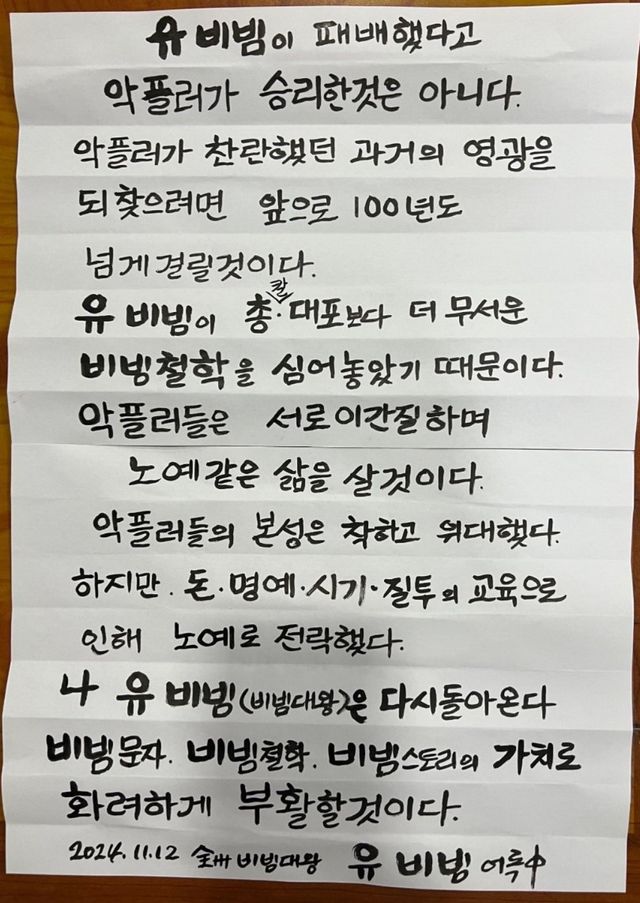 유 비빔이 패배했다고
악플러가 승리한것은 아니다.
악플러가 찬란했던 과거의 영광을
되찾으려면 앞으로 100년도
넘게걸릴것이다.
유 비빔이 총·칼·대포보다 더 무서운
비빔철학을 심어놓았기 때문이다.
악플러들은 서로이간질하며
노예같은 삶을 살것이다.
악플러들의 본성은 착하고 위대했다.
하지만. 돈·명예·시기·질투의 교육으로
인해 노예로 전락했다.
나 유 비빔(비빔대왕)은 다시돌아온다
비빔문자. 비빔철학. 비빔스토리의 가치로
화려하게 부활할것이다.
2024.11.12 全州 비빔대왕 유 비빔 어록中